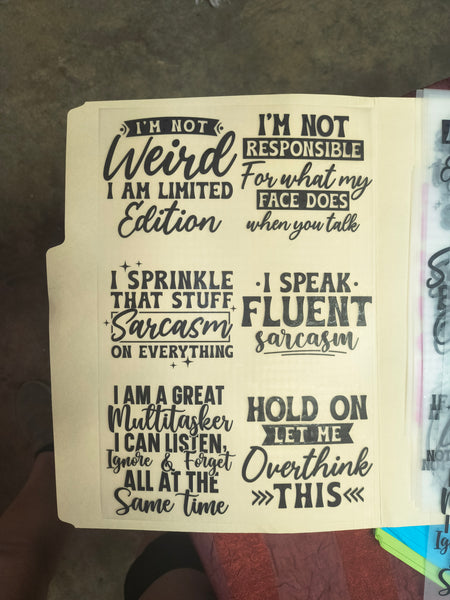 I'M NOT
Weird
I AM LIMITED
Edition
I'M NOT
RESPONSIBLE
For what my
FACE DOES
when you talk
I SPRINKLE
THAT STUFF
Sarcasm
ON EVERYTHING
· I SPEAK ·
FLUENT
sarcasm
I AM A GREAT
Multitasker
I CAN LISTEN,
Ignore & Forget
ALL AT THE
Same Time
HOLD ON
LET ME
Overthink
THIS
IF